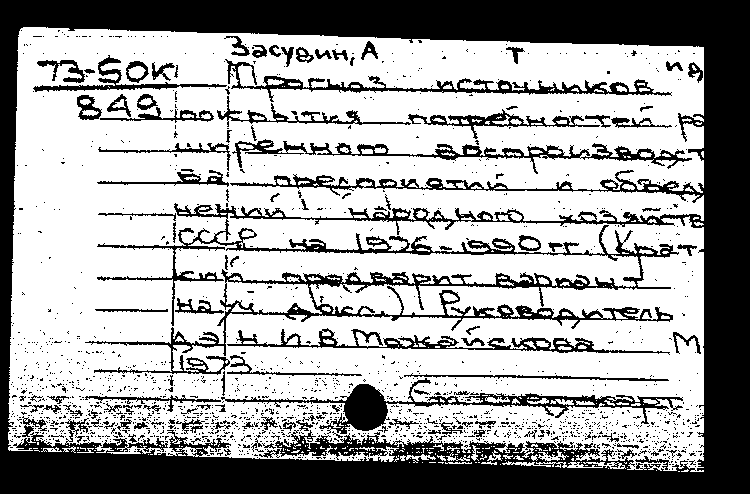 Засувин, А Т и д
73-50К Прогноз источников
849 покрытия потребностей ра
ширенного воспроизводст
ва предприятий и объеди
нений народного хозяйств
СССР на 1976-1990 гг. (Крат-
кий предварит. вариант
науч. докл.). Руководитель
д.э.н. И.В. Можайскова М
1973
См. след. карт